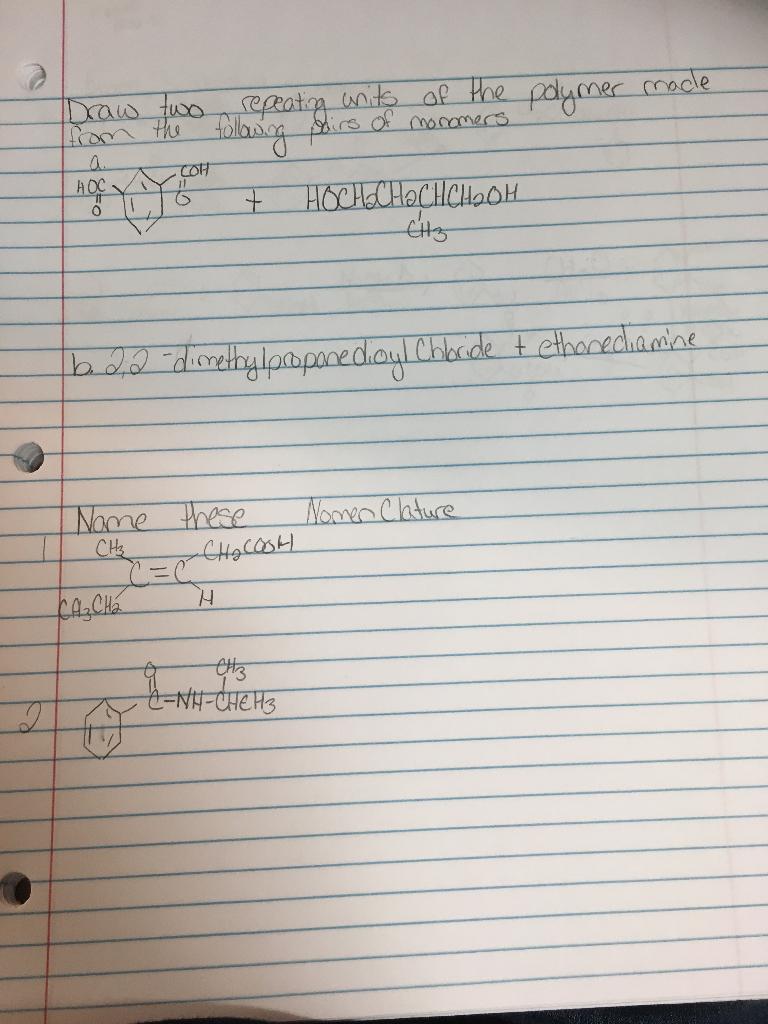 Draw two repeating units of the polymer made
from the following pairs of monomers
a.
HOC COH
O O
+ HOCH2CH2CHCH2OH
CH3
b. 2,2-dimethylpropanedioyl Chloride + ethanediamine
Name these Nomen Clature
1 CH3 CH2COOH
C=C
CH3CH2 H
O CH3
2 C-NH-CHCH3